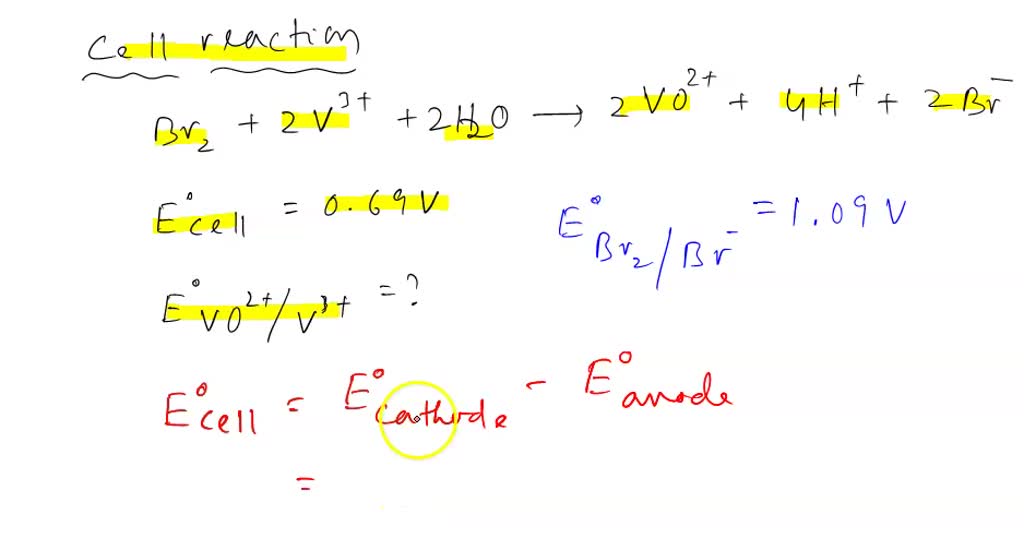 Cell reaction
Br₂ + 2V³⁺ + 2H₂O → 2VO²⁺ + 4H⁺ + 2Br⁻
E°cell = 0.69V
E°Br₂/Br⁻ = 1.09 V
E°VO²⁺/V³⁺ = ?
E°cell = E°cathode - E°anode
=